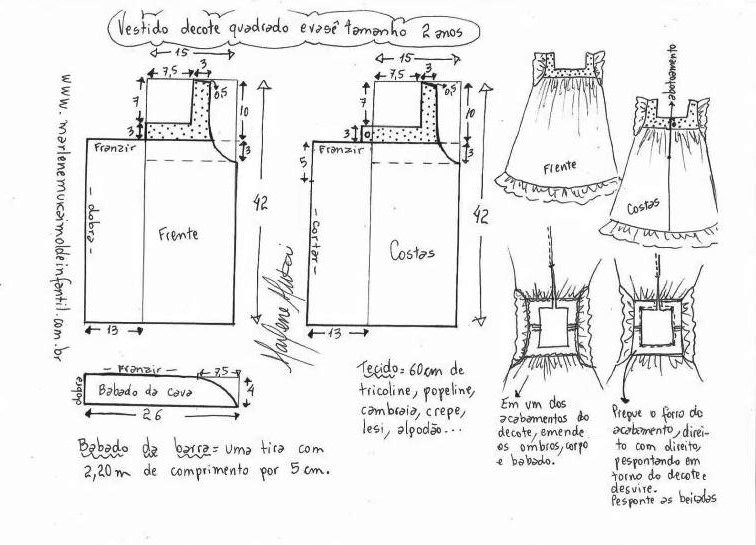 Vestido decote quadrado evasê tamanho 2 anos
www.marlenemukaimoldeinfantil.com.br
15
7,5
3
0,5
7
10
3
3
Franzir
dobra
Frente
42
13
15
7,5
3
0,5
7
10
3
3
Franzir
5
cortar
Costas
42
13
Marlene Mukai
Frente
abotoamento
Costas
Franzir
7,5
dobra
Babado da cava
4
26
Babado da barra = uma tira com
2,20m de comprimento por 5 cm.
Tecido = 60cm de
tricoline, popeline,
cambraia, crepe,
lesi, algodão...
Em um dos
acabamentos do
decote, emende
os ombros, corpo
e babado.
Pregue o forro do
acabamento, direi-
to com direito,
pespontando em
torno do decote e
desvire.
Pesponte as beiradas